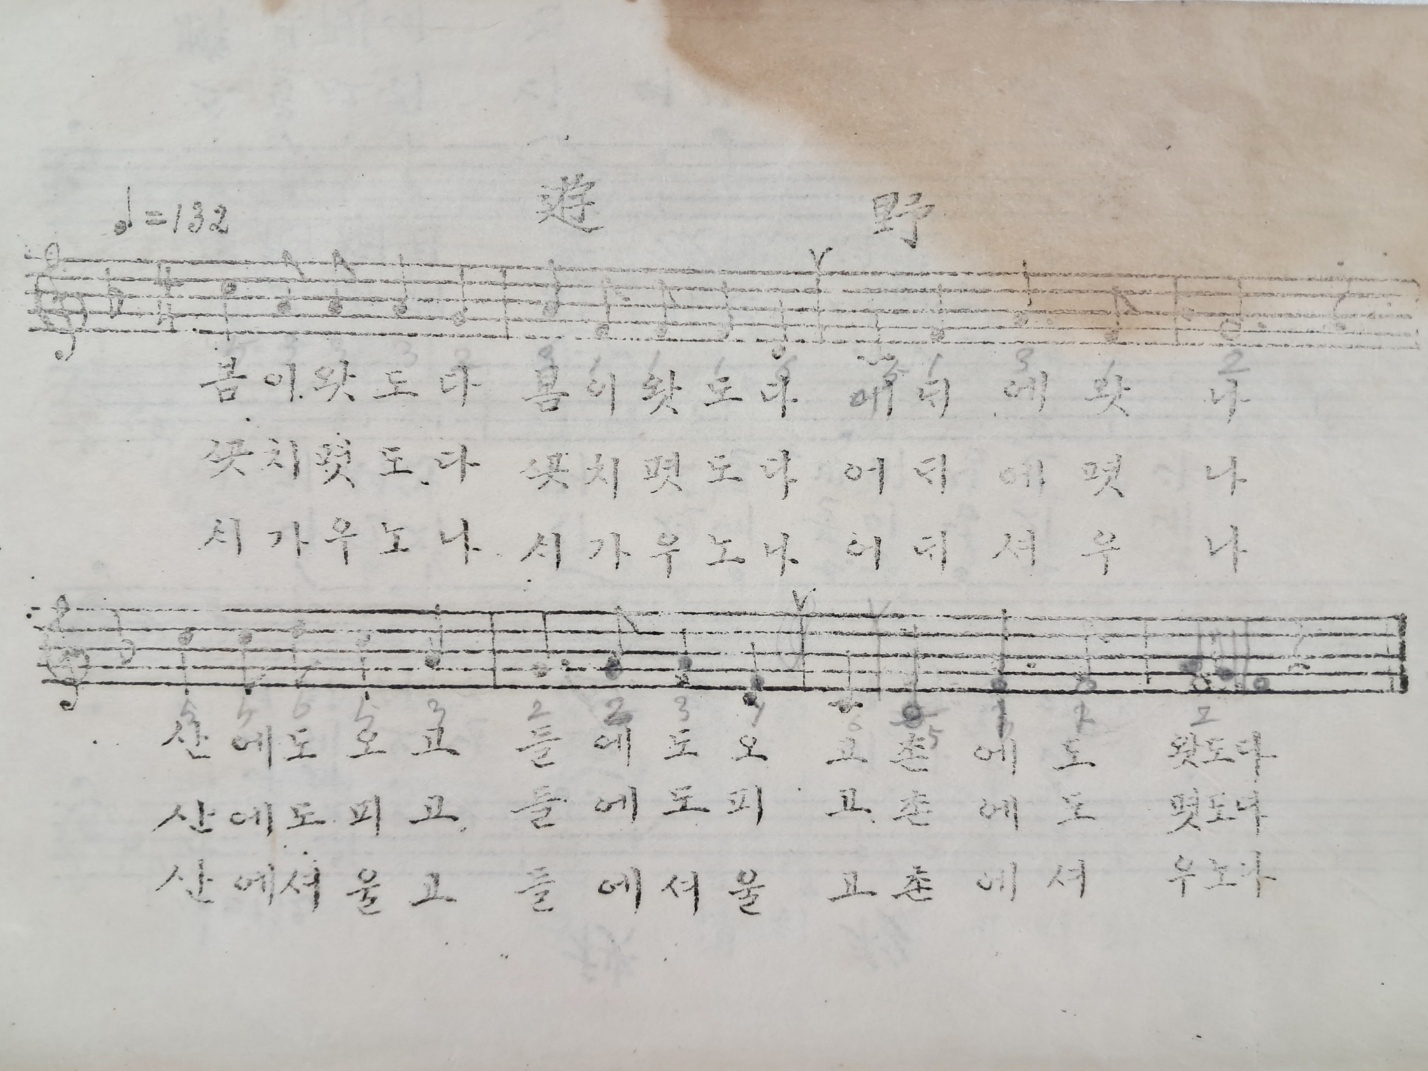 ♩=132
遊 野
봄이왓도다 봄이왓도다 에듸에왓나
ᄭᅩᆺ치폇도다 ᄭᅩᆺ치폇도다 어듸에폇나
시가우노나 시가우노나 어듸셔우나
산에도오고 들에도오고 촌에도 왓도다
산에도피고 들에도피고 촌에도 폇도다
산에셔울고 들에셔울고 촌에셔 우노다